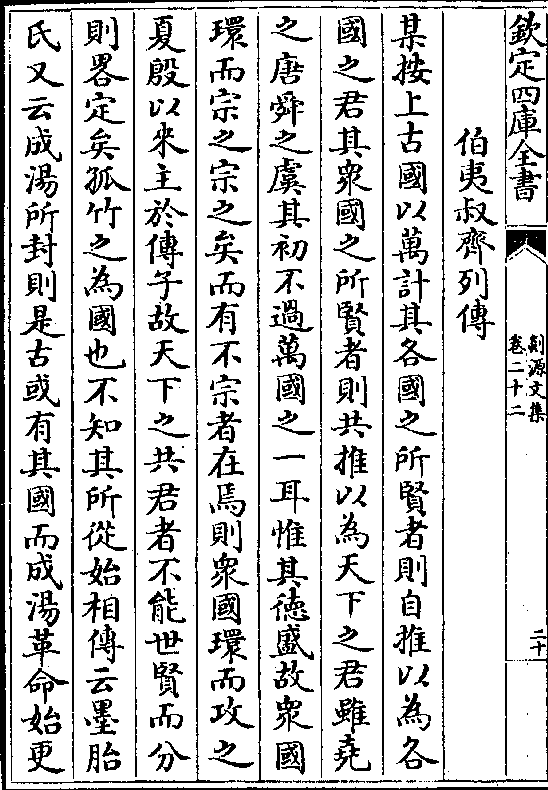 欽定四庫全書
剡源文集
卷二十二
二十
伯夷叔齊列傳
某按上古國以萬計其各國之所賢者則自推以為各
國之君其衆國之所賢者則共推以為天下之君雖堯
之唐舜之虞其初不過萬國之一耳惟其徳盛故衆國
環而宗之宗之矣而有不宗者在焉則衆國環而攻之
夏殷以來主於傳子故天下之共君者不能世賢而分
則畧定矣孤竹之為國也不知其所從始相傳云墨胎
氏又云成湯所封則是古或有其國而成湯革命始更